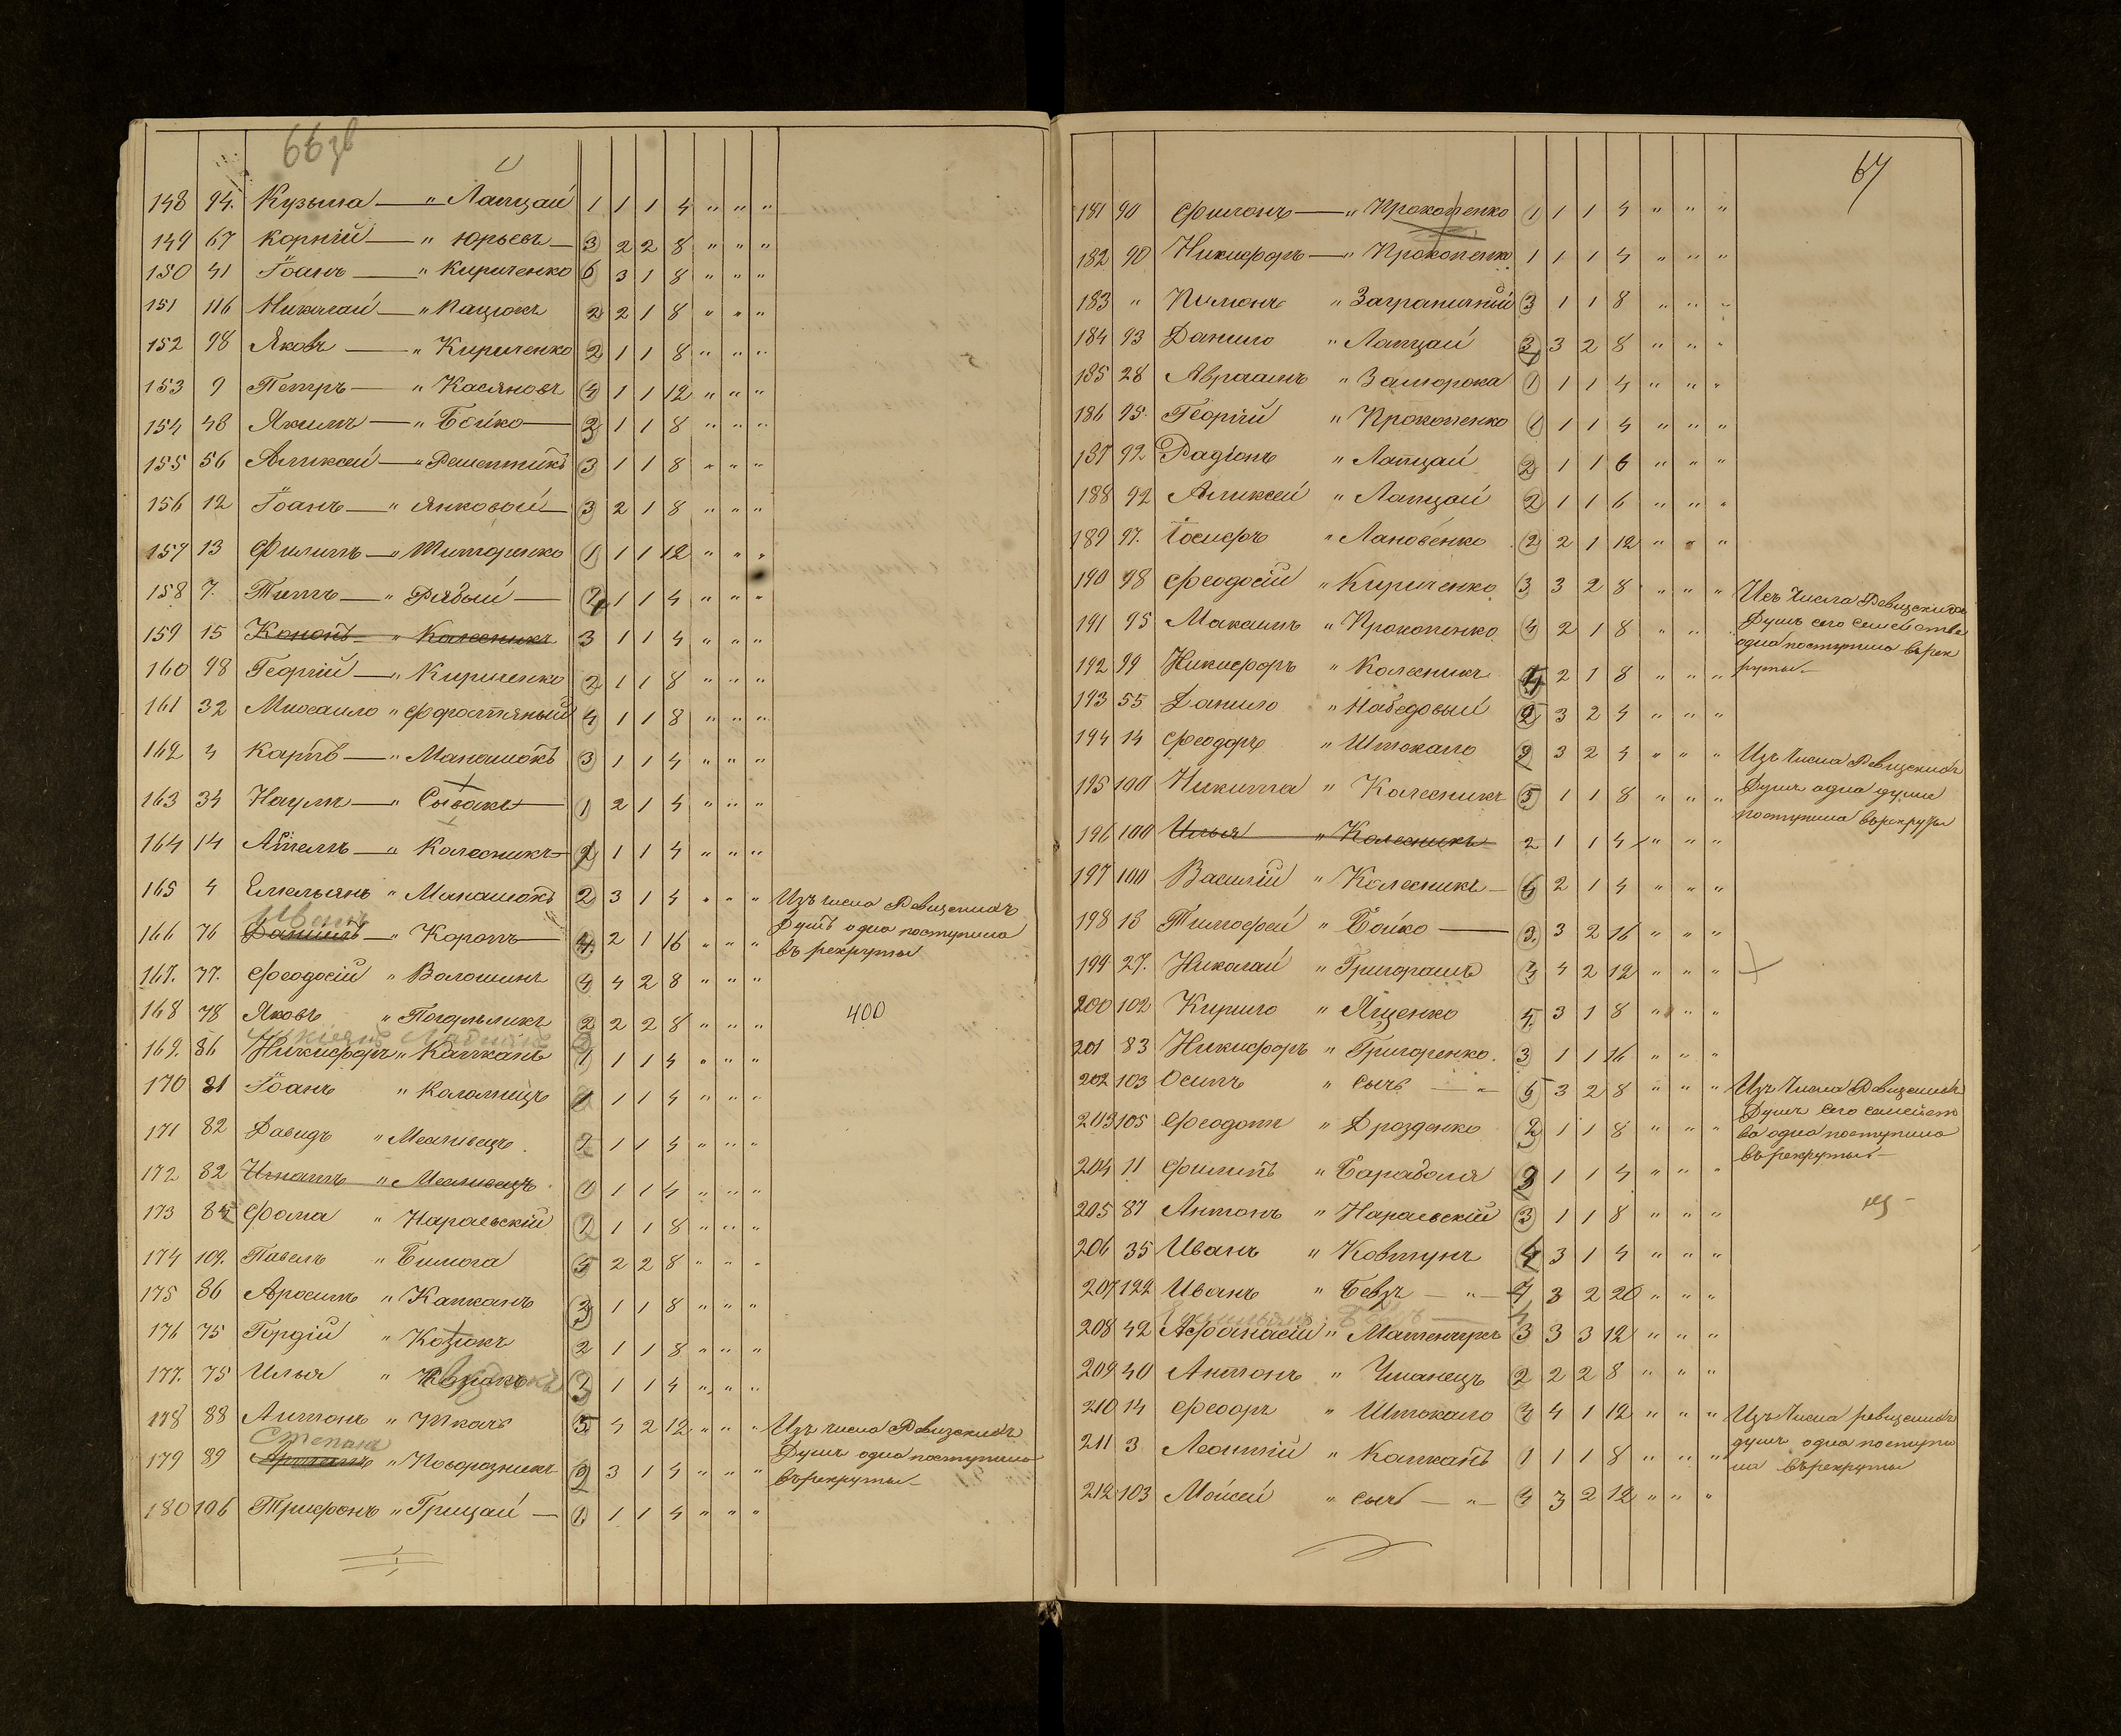 66 зв
148 94. Кузьма — " Лапцай 1 1 1 4 " " "
149 67 Корній — " Юрьевъ — 3 2 2 8 " " "
150 41 Іоанъ — " Кириченко 6 3 1 8 " " "
151 116 Николай — " Пацюкъ 2 2 1 8 " " "
152 98 Яковъ — " Кириченко 2 1 1 8 " " "
153 9 Петръ — " Касяновъ 4 1 1 12 " " "
154 48 Якимъ — " Бойко — 2 1 1 8 " " "
155 56 Алексей — " Решетникъ 3 1 1 8 " " "
156 12 Іоанъ — " Янковой — 3 2 1 8 " " "
157 13 Филипъ — " Титаренко 1 1 1 12 " " "
158 7. Титъ — " Рябый — 1 1 4 " " "
159 15 Кононъ " Колесникъ 3 1 1 4 " " "
160 98 Георгій — " Кириченко 2 1 1 8 " " "
161 32 Михаило " 4 1 1 8 " " "
162 4 Карпъ — " Манашокъ 3 1 1 4 " " "
163 34 Наумъ — " Сывакъ — 1 2 1 4 " " "
164 14 — " Колесникъ — 1 1 4 " " "
165 4 Емельянъ " Манашокъ 2 3 1 4 " " " Изъ числа Ревизскихъ
Иванъ
166 76 Даниилъ — " Коропъ — 4. 2 1 16 " " " Душъ одна поступила
въ рекруты
167. 77. Феодосій " Волошинъ 4 4 2 8 " " "
168 78 Яковъ " Погорѣликъ 2 2 2 8 " " " 400
169. 86 Никифоръ " Капканъ 1 1 1 4 " " "
170 31 Іоанъ " Коломіецъ 1 1 4 " " "
171 82 Давидъ " Мѣливецъ 2 1 1 4 " " "
172 82 Игнатъ " Мѣливецъ 1 1 1 4 " " "
173 84 Фома " Нараевскій 2 1 1 8 " " "
174 109. Павелъ " Билюга 5 2 2 8 " " "
175 86 " Капканъ 3 1 1 8 " " "
176 75 Гордій " Козюкъ 2 1 1 8 " " "
177. 75 Илья " 1 1 4 " " "
178 88 Антонъ " Ткачъ 5 4 2 12 " " " Изъ числа Ревизскихъ
Степанъ
179 89 " 2 3 1 4 " " " Душъ одна поступила
въ рекруты —
180 106 Трифонъ " Грицай — 1. 1 1 4 " " "
67
181 90 Филонъ — " Прокопенко 1 1 1 4 " " "
182 90 Никифоръ — " Прокопенко 1 1 1 4 " " "
183 " Пимонъ " Заграничный 3 1 1 8 " " "
184 93 Данило " Лапцай 3 3 2 8 " " "
185 28 Авраамъ " Заморока 1 1 1 4 " " "
186 95. Георгій " Прокопенко 1 1 1 4 " " "
187 92 Радіонъ " Лапцай 2 1 1 6 " " "
188 92 Алексей " Лапцай 2 1 1 6 " " "
189 97. Іосифъ " Лановенко 2 2 1 12 " " "
190 98 Феодосій " Кириченко 3 3 2 8 " " " Изъ Числа Ревизскихъ
191 95 Максимъ " Прокопенко 4 2 1 8 " " Душъ сего семейства
одна поступила въ рек
192 99 Никифоръ " Колесникъ 4 2 1 8 " " " руты —
193 55 Данило " 2 3 2 4 " " "
194 14 Феодоръ " Штокало 3 3 2 4 " " " Изъ Числа Ревизскихъ
195 100 Никита " Колесникъ 5 1 1 8 " " " Душъ одна душа
поступила въ рекруты
196 100 Илья " Колесникъ 2 1 1 4 " " "
197 100 Василій " Колесникъ — 6 2 1 4 " " "
198 18 Тимофей " Бойко — 3. 3 2 16 " " "
199 27. Николай " Григорашъ 4 2 12 " " "
200 102 Кирило " Яценко 5. 3 1 8 " " "
201 83 Никифоръ " Григоренко. 3 1 1 16 " " "
202 103 Осипъ " Сычъ — " 5 3 2 8 " " " Изъ Числа Ревизскихъ
203 105 Феодотъ " Дрозденко 2 1 1 8 " " " Душъ Его семейст
ва одна поступила
204 11 Филипъ " Бараболя 3 1 1 4 " " " въ рекруты —
205 87 Антонъ " Нараевскій 3 1 1 8 " " "
206 35 Иванъ " Ковтунъ 4 3 1 4 " " "
207 122 Иванъ " Бевзъ — " — 4 3 2 20 " " "
208 42 Афонасій " 3 3 3 12 " " "
209 40 Антонъ " Уманецъ 2 2 2 8 " " "
210 14 Феодръ " Штокало 4 4 1 12 " " " Изъ Числа ревизскихъ
211 3 Леонтій " Капканъ 1 1 1 8 " " " душъ одна поступи
ла въ рекруты
212 103 Мойсей " Сычъ — " — 4 3 2 12 " " "